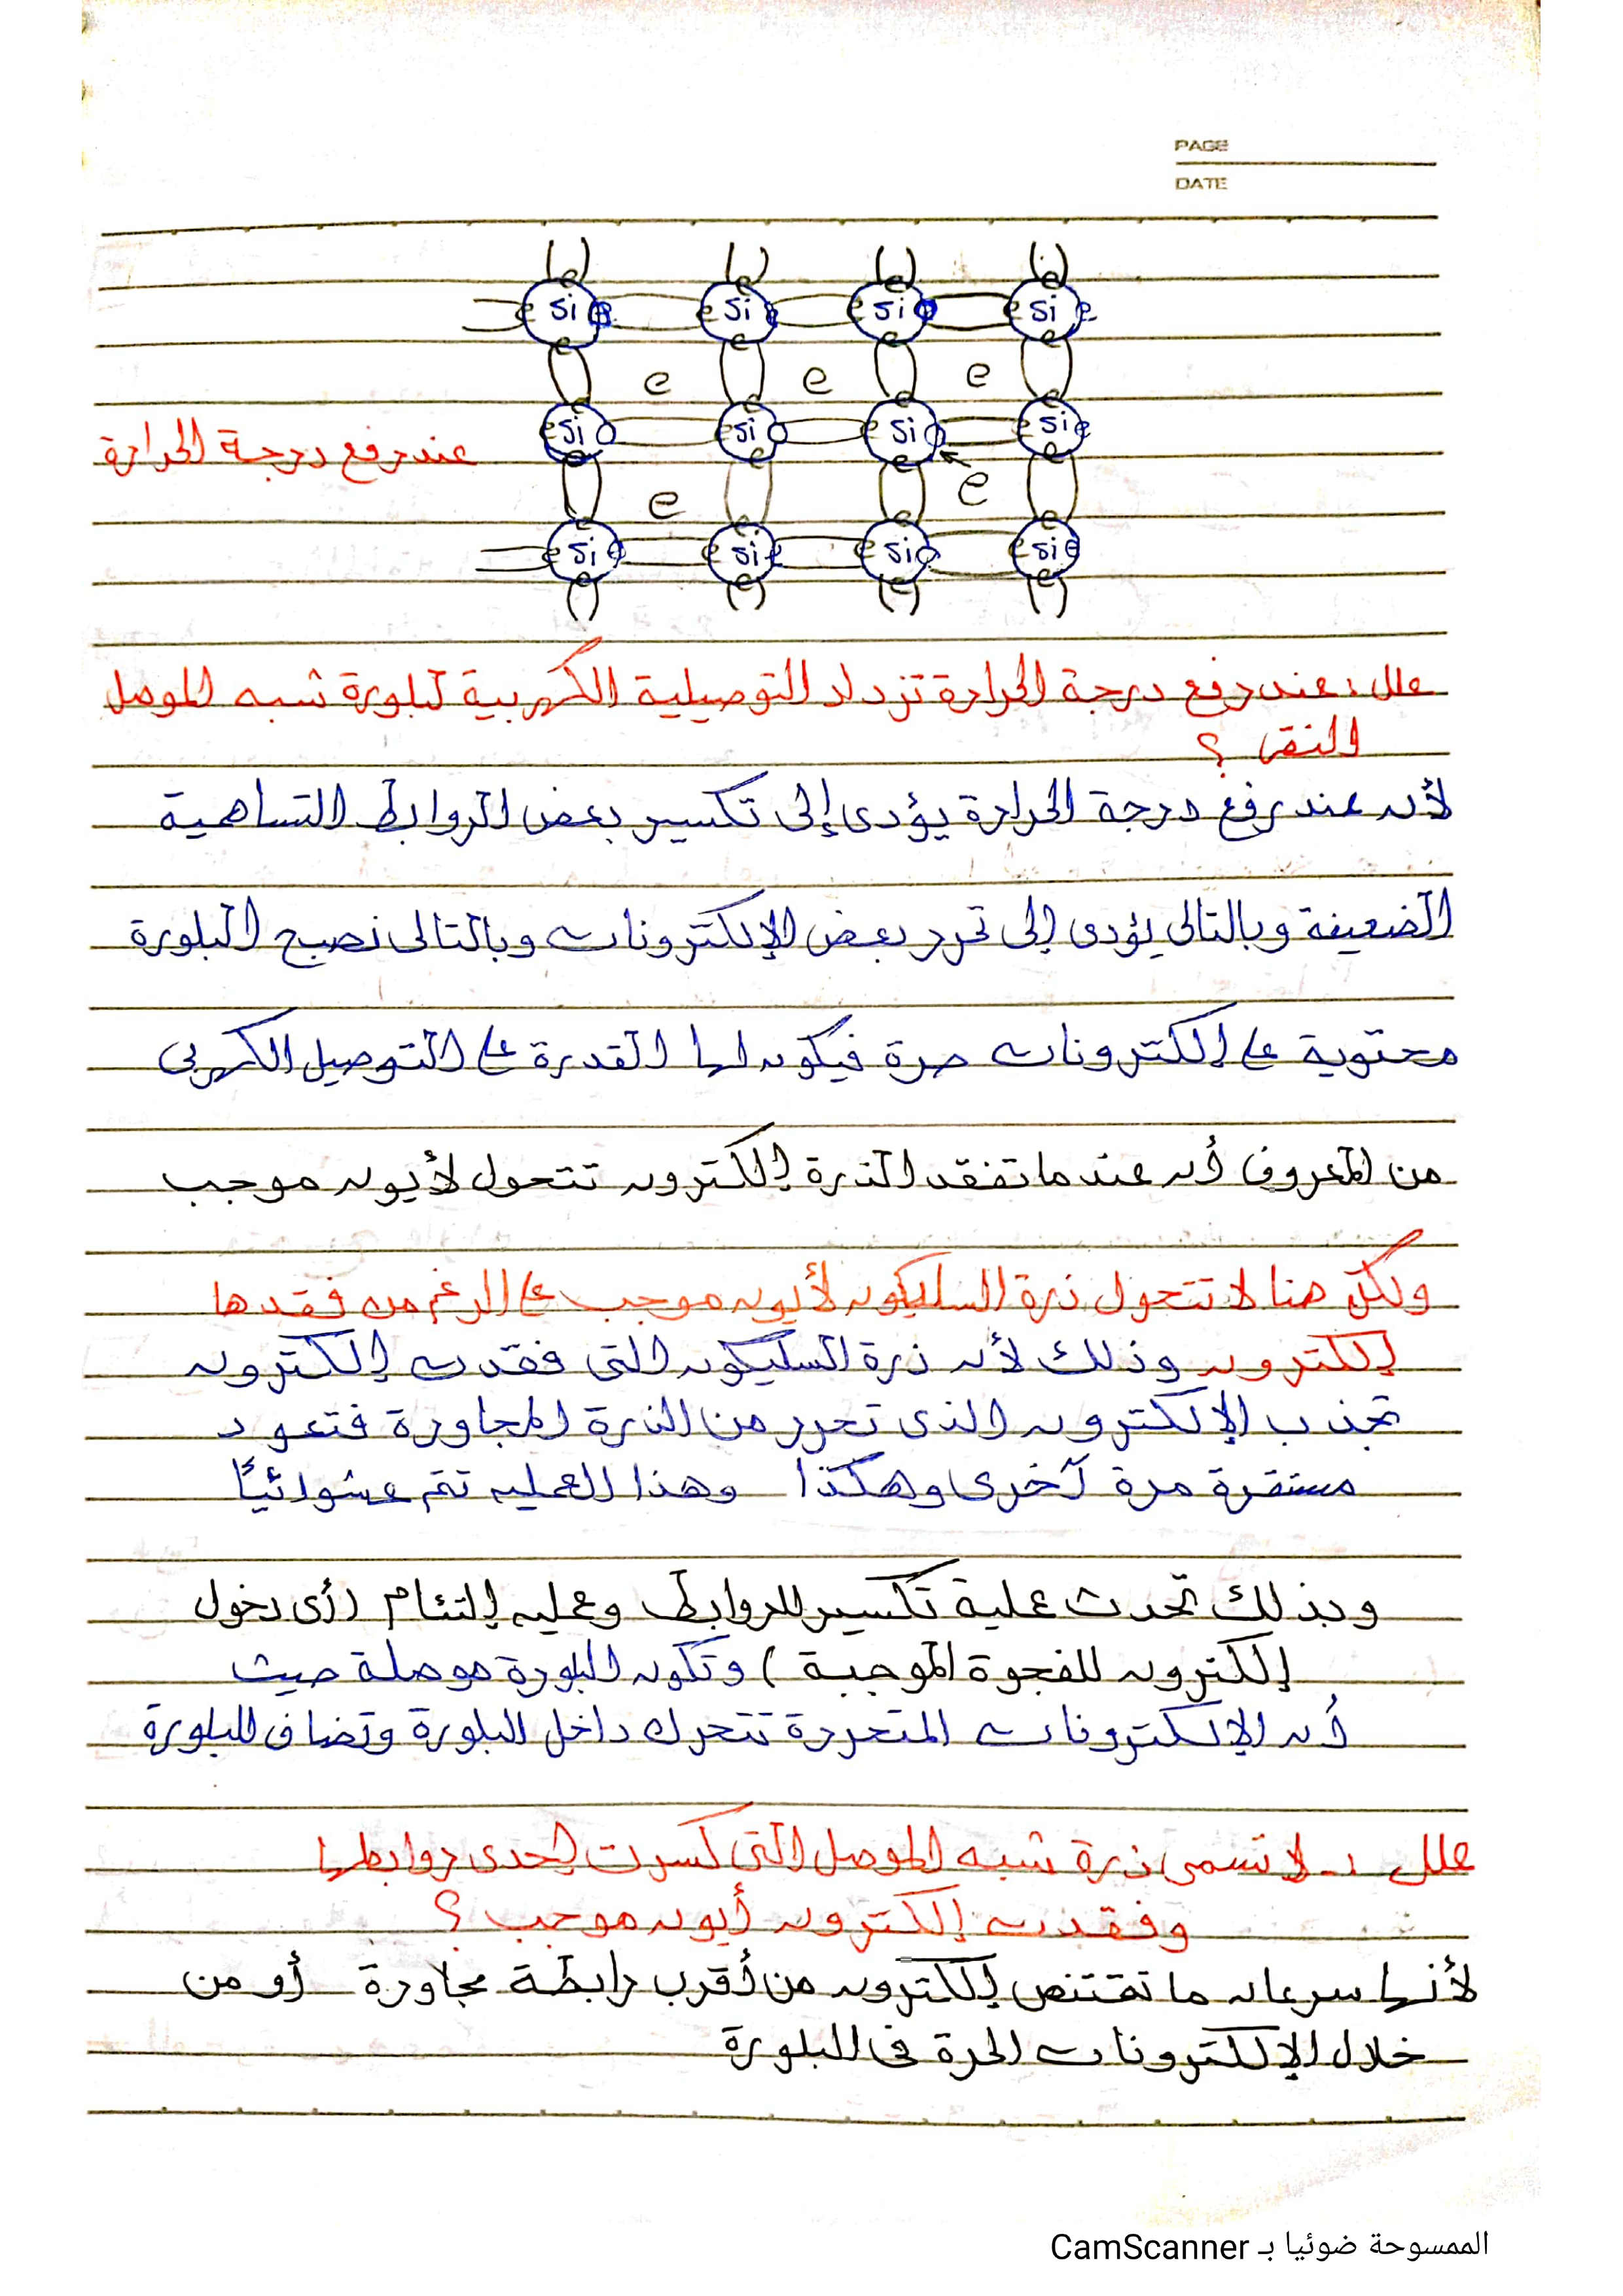 PAGE
DATE
Si Si Si Si
e e e
Si Si Si Si
عند رفع درجة الحرارة
e e
Si Si Si Si
علل : عند رفع درجة الحرارة تزداد التوصيلية الكهربية لبلورة شبه الموصل
النقى ؟
لأنه عند رفع درجة الحرارة يؤدى إلى تكسير بعض الروابط التساهمية
الضعيفة وبالتالى يؤدى إلى تحرر بعض الإلكترونات وبالتالى تصبح البلورة
محتوية على إلكترونات حرة فيكون لها القدرة على التوصيل الكهربى
من المعروف أنه عندما تفقد الذرة إلكترون تتحول لأيون موجب
ولكن هنا لا تتحول ذرة السليكون لأيون موجب على الرغم من فقدها
إلكترون وذلك لأن ذرة السليكون التى فقدت إلكترون
تجذب الإلكترون الذى تحرر من الذرة المجاورة فتعود
مستقرة مرة آخرى وهكذا وهذا العمليه تتم عشوائيًا
وبذلك تحدث عملية تكسير للروابط وعمليه إلتئام (أى دخول
إلكترون للفجوة الموجبة) وتكون البلورة موصلة حيث
أن الإلكترونات المتحررة تتحرك داخل البلورة وتضاف للبلورة
علل :- لا تسمى ذرة شبه الموصل التى كسرت إحدى روابطها
وفقدت إلكترون أيون موجب ؟
لأنها سرعان ما تقتنص إلكترون من أقرب رابطة مجاورة أو من
خلال الإلكترونات الحرة فى البلورة
الممسوحة ضوئيا بـ CamScanner